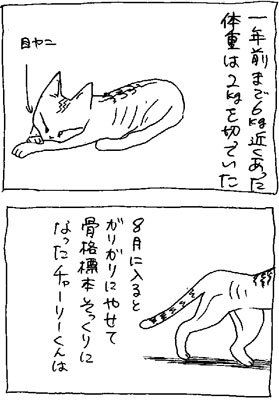 一年前まで6kg近くあった
体重は2kgを切っていた
目ヤニ
8月に入ると
がりがりにやせて
骨格標本そっくりに
なったチャーリーくんは